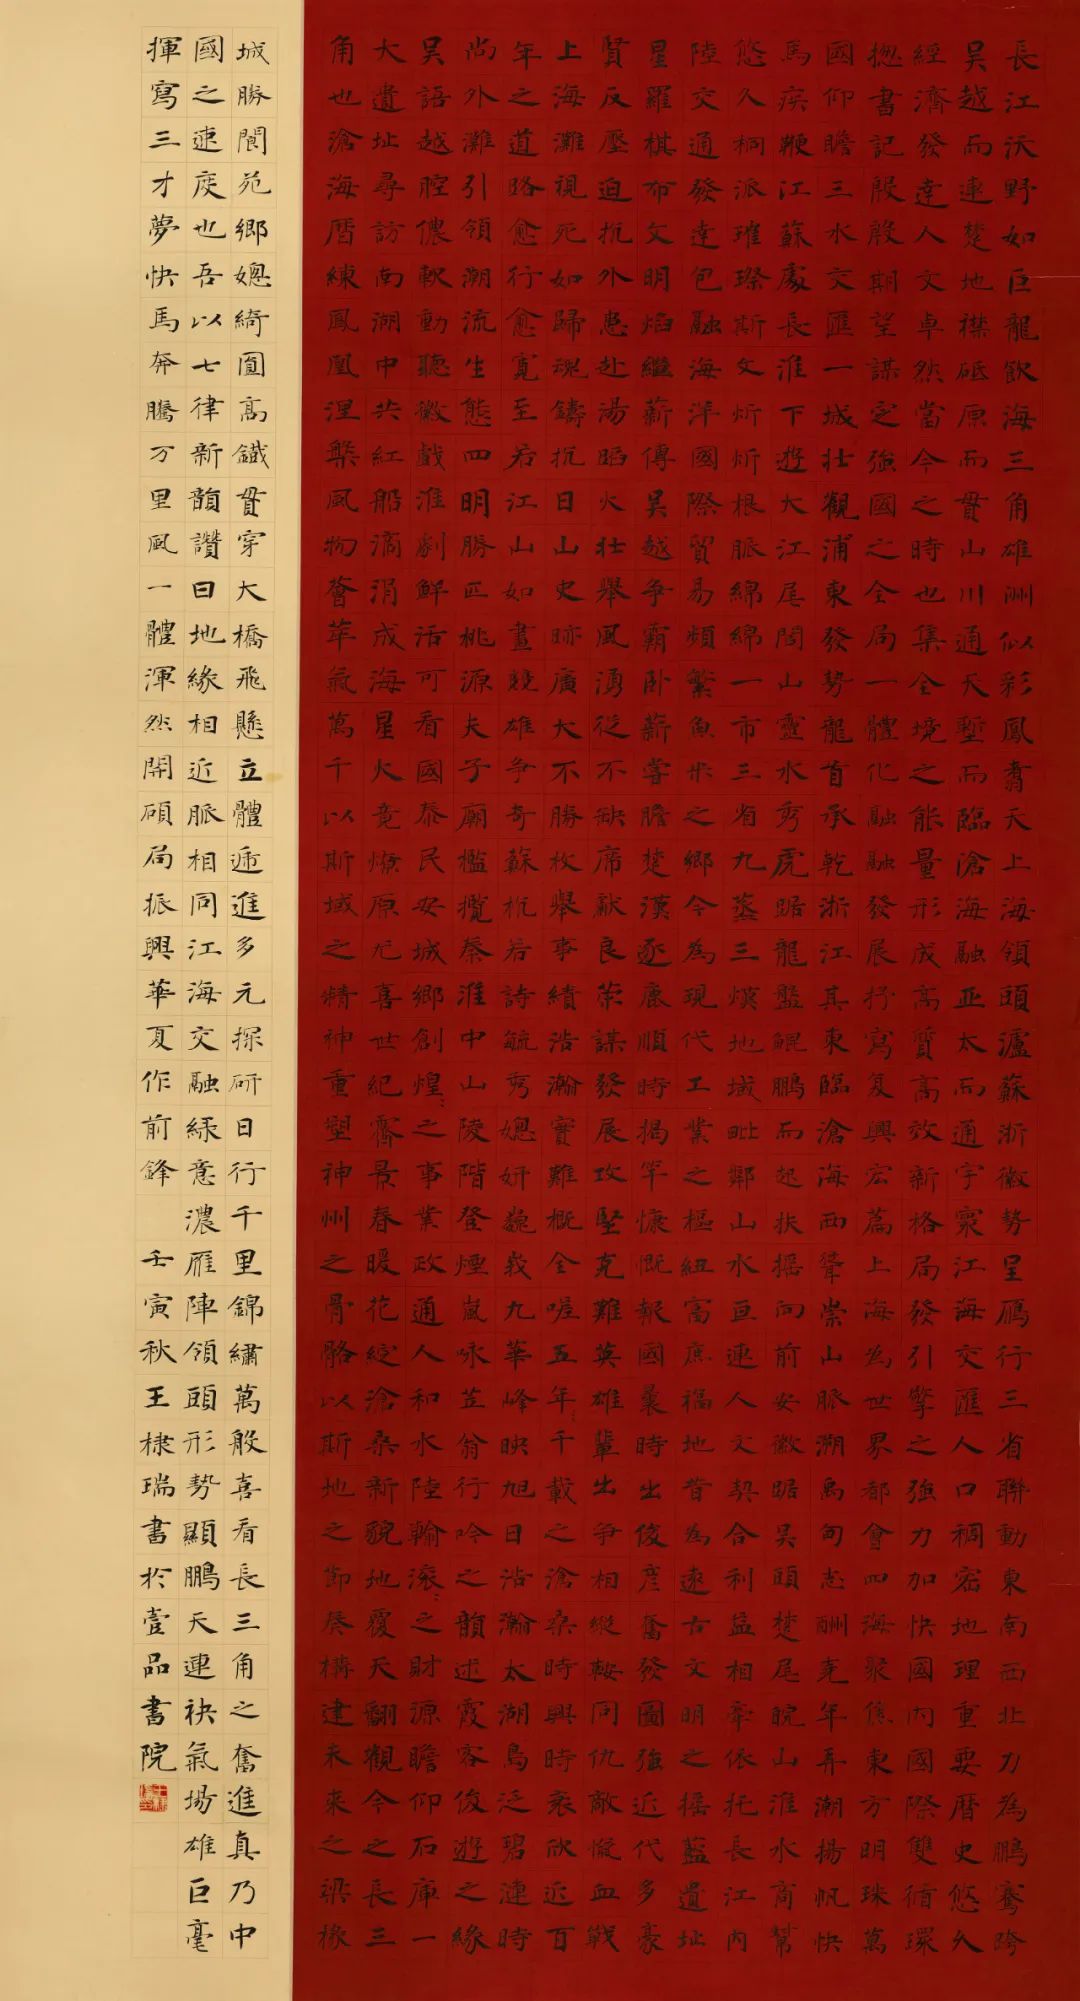 長江沃野如巨龍飲海三角雄洲似彩鳳翥天上海領頭瀘蘇浙徽勢呈雁行三省聯動東南西北力為鵬騫跨
吴越而連楚地襟砥原而貫山川通天塹而臨滄海融亞太而通宇寰江海交匯人口稠密地理重要曆史悠久
經濟發達人文卓然當今之時也集全境之能量形成高質高效新格局發引擎之強力加快國內國際雙循環
摠書記殷殷期望謀定強國之全局一體化融融發展抒寫复興宏篇上海為世界都會四海聚焦東方明珠萬
國仰瞻三水交匯一城壯觀浦東發勢龍首承乾浙江其東臨滄海西聳崇山脈溯禹甸志酬堯年弄潮揚帆快
馬疾鞭江蘇處長淮下遊大江尾閭山靈水秀虎踞龍盤鯤鵬而起扶摇向前安徽踞吴頭楚尾皖山淮水商幫
悠久桐派璀璨斯文炘炘根脈綿綿一市三省九蒸三熯地域毗鄰山水亘連人文契合利益相牽依托長江內
陸交通發達包融海洋國際貿易頻繁魚米之鄉今為現代工業之樞紐富庶福地昔為遠古文明之摇藍遺址
星羅棋布文明焰繼薪傳吴越争霸卧薪嘗膽楚漢逐鹿順時揭竿慷慨報國曩時出俊彥奮發圖強近代多豪
賢反壓迫抗外患赴湯蹈火壯舉風湧從不缺席獻良策謀發展攻堅克難英雄輩出争相縱鞍同仇敵愾血戰
上海灘視死如歸魂鑄抗日山史跡廣大不勝枚舉事績浩瀚實難概全嗟五年千載之滄桑時興時衰欣近百
年之道路愈行愈寬至若江山如畫競雄争奇蘇杭若詩毓秀媲妍巍峩九華峰映旭日浩瀚太湖鳥泛碧漣時
尚外灘引領潮流生態四明勝匹桃源夫子廟檻攬秦淮中山陵階登煙嵐咏笠翁行吟之韻述霞客俊遊之緣
吴語越腔儂軟動聽徽戲淮劇鮮活可看國泰民安城鄉創煌之事業政通人和水陸輸滾之財源瞻仰石庫一
大遺址尋訪南湖中共紅船滴涓成海星火竟燎原尤喜世紀霽景春暖花綻滄桑新貌地覆天翻觀今之長三
角也滄海曆練鳳凰涅槃風物薈萃氣萬千以斯域之精神重塑神州之骨骼以斯地之節葵構建未來之梁椽
城勝閬苑鄉媲綺圓高鐵貫穿大橋飛懸立體遞進多元探研日行千里錦繡萬般喜看長三角之奮進真乃中
國之速度也吾以七律新韻讚曰地緣相近脈相同江海交融緑意濃雁陣領頭形勢顯鵬天連袂氣場雄巨毫
揮寫三才夢快馬奔騰万里風一體渾然開碩局振興華夏作前鋒 壬寅秋王棣瑞書於壹品書院